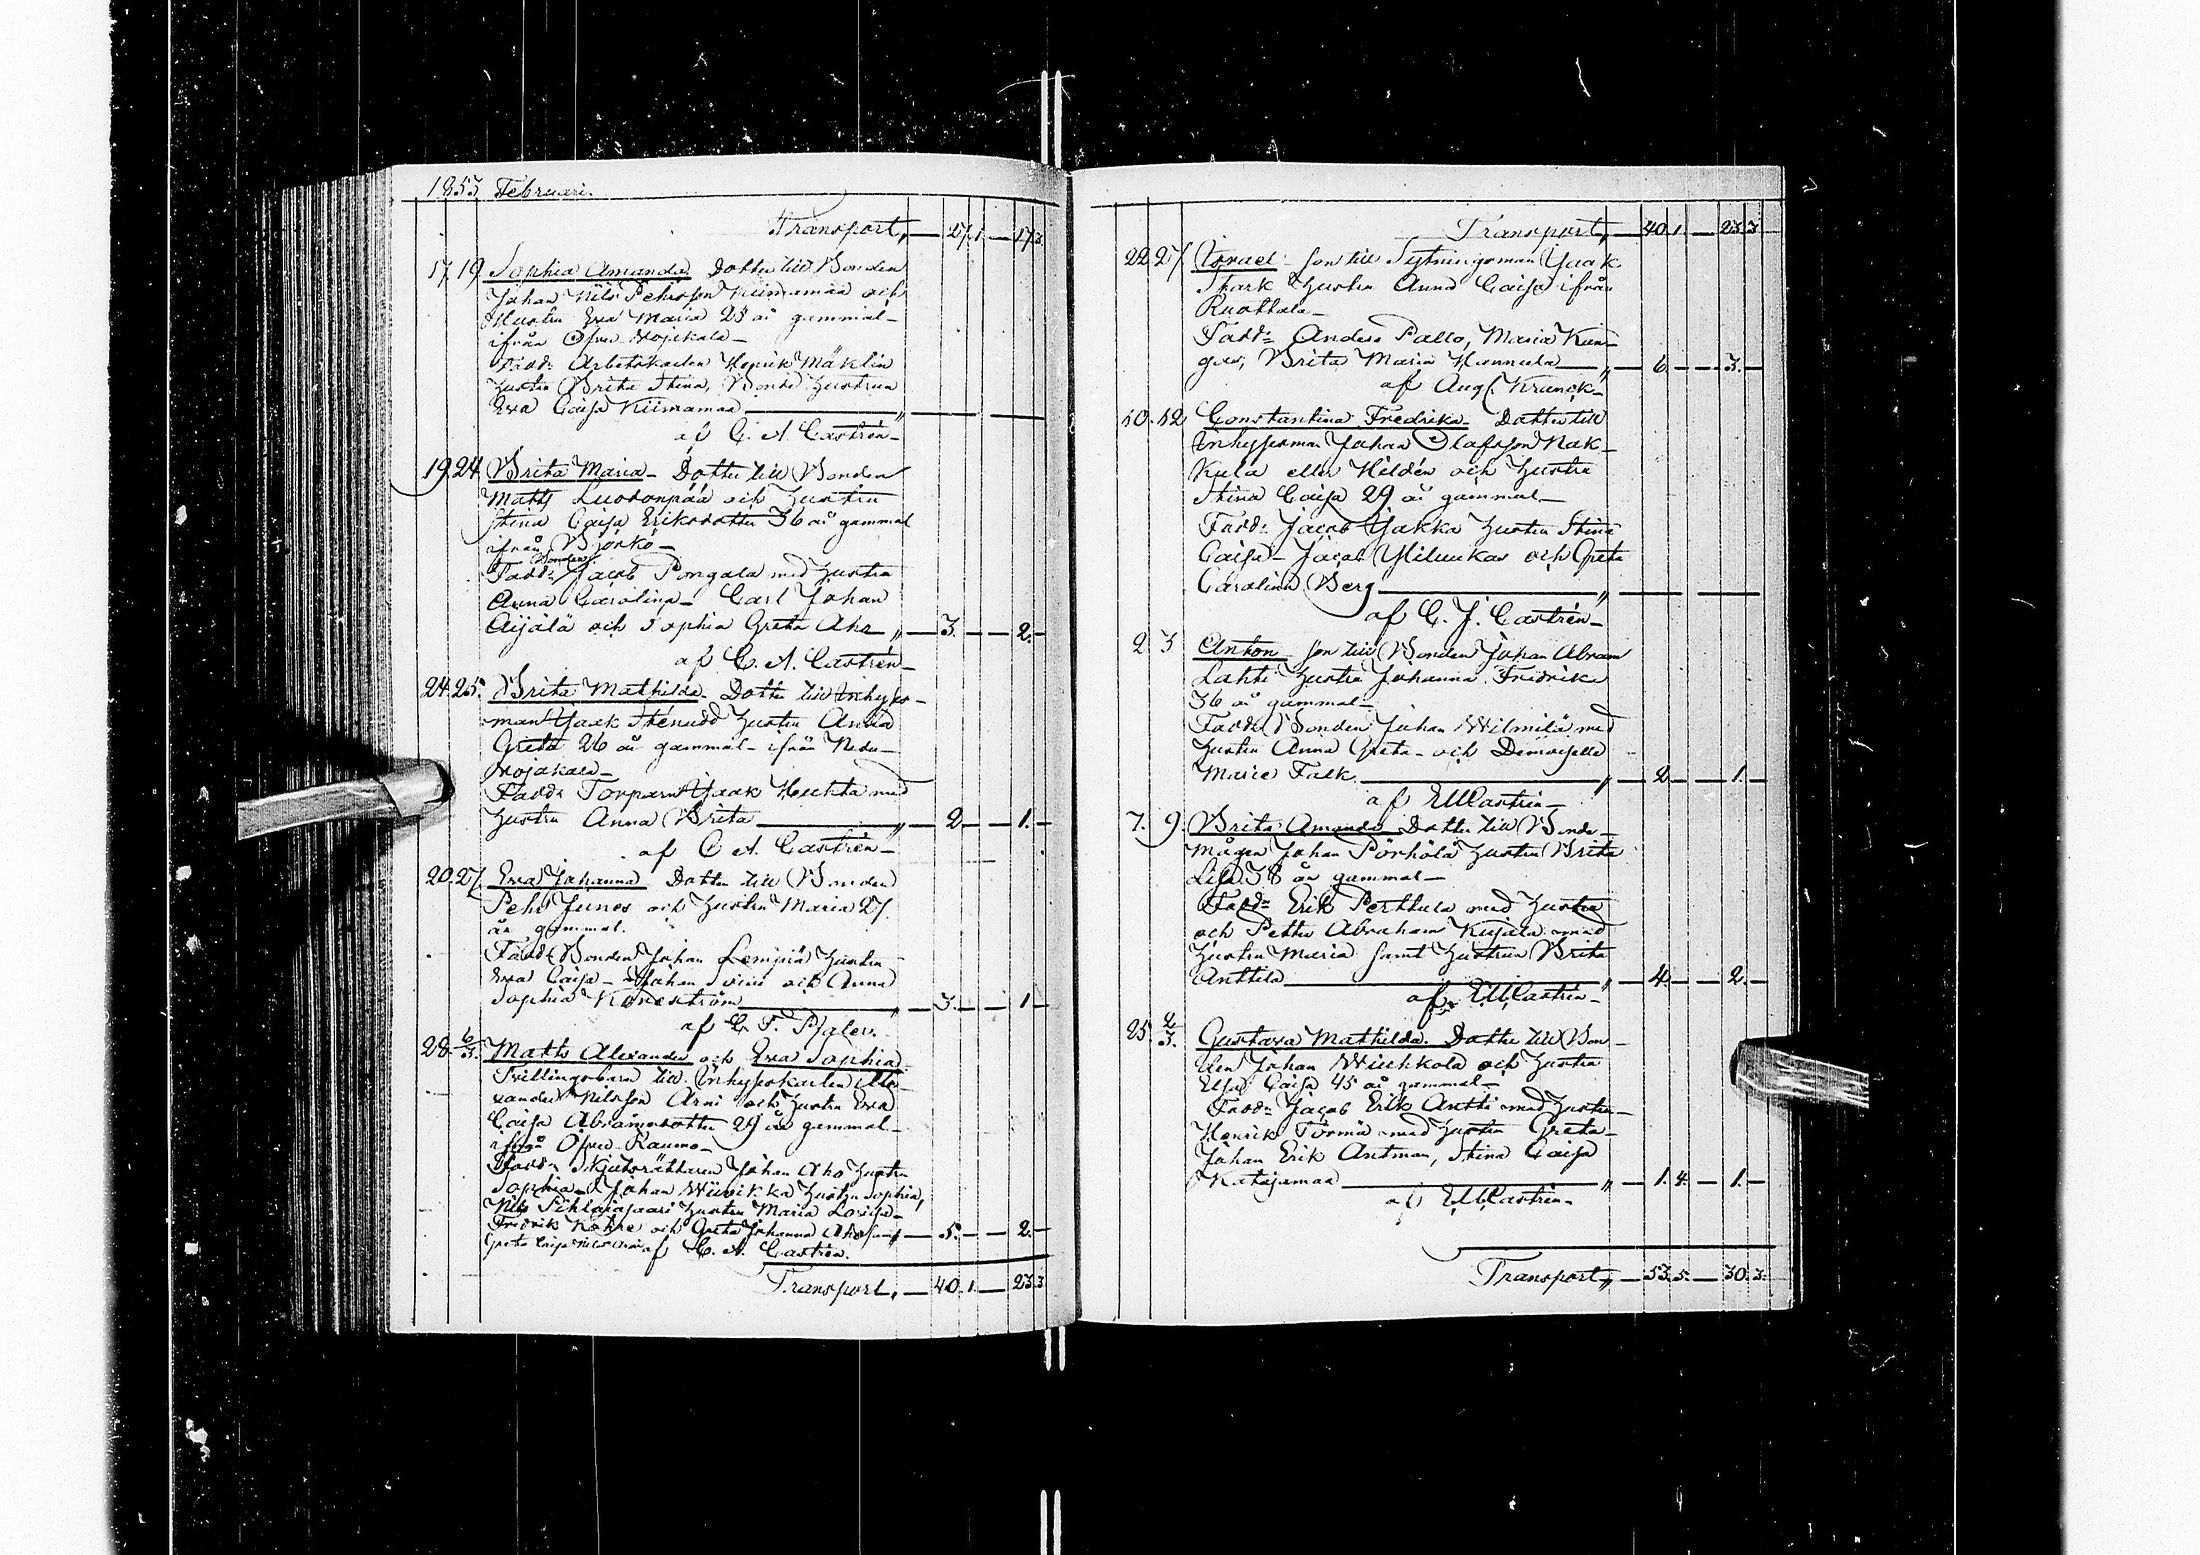 1853 Februari.
Transport, — 27. 1. — 17. 3.
17. 19. Sophia Amanda. Dotter till Bonden
Johan Nils Pehrsson Kiimamaa och
Hustru Eva Maria 25 år gammal —
ifrån Öfver Wojakala —
Fadd: Arbetskarlen Henrik Mäklin
hustru Brita Stina, Bonde hustrun
Eva Caisa Kiimamaa — „ — — —
af C. A. Castrén —
19. 24. Brita Maria — Dotter till Bonden
Matts Luotonpää och hustru
Stina Caisa Eriksdotter 36 år gammal
ifrån Björkö —
Bonden
Fadd: Jacob Pongala med hustru
Anna Carolina — Carl Johan
Äijälä och Sophia Greta Aho „ — 3. — — 2. —
af C. A. Castrén —
24. 25. Brita Mathilda. Dotter till Inhyses-
man Isaak Stenudd hustru Anna
Greta 26 år gammal — ifrån Neder-
wojakala —
Fadd: Torparn Isaak Houhta med
hustru Anna Brita — „ — 2. — — 1. —
af C. A. Castrén —
20. 27. Eva Johanna Dotter till Bonden
Pehr Junes och hustru Maria 27
år gammal.
Fadd: Bonden Johan Lempiä hustru
Eva Caisa — Johan Soini och Anna
Sophia — „ — 3. — — 1. —
af C. F.
28. 6/3. Matts Alexander och Eva Sophia
Tvillingsbarn till Inhyseskarlen Alex-
ander Nilsson Arni och hustru Eva
Caisa Abramsdotter 29 år gammal —
ifrån Öfver Raumo —
Fadd: Skjutsrättaren Johan Aho hustru
Sophia — Johan Wiinikka hustru Sophia,
Nils Pihlajajaari hustru Maria Lovisa —
Fredrik Kohre och Greta Johanna Aho „ — 5. — — 2. —
Greta Caisa af C. A. Castrén.
Transport, — 40. 1. — 23. 3.
Transport, — 40. 1. — 23. 3.
22. 27. Israel — son till Sytningsman Isaak
Stark hustru Anna Caisa ifrån
Ruottala —
Fadd: Anders Pallo, Maria Kun-
gas, Brita Maria Hannula — „ — 6. — — 3. —
af Aug. Krunck —
10. 12. Constantina Fredrika — Dotter till
Inhysesman Johan Olofsson Nak-
kula eller Hildén och hustru
Stina Caisa 29 år gammal —
Fadd: Jacob Jakka hustru Stina
Caisa — Jacob Yliluukas och Greta
Carolina Berg — „ — — —
af C. J. Castrén —
2. 3. Anton son till Bonden Johan Abram
Lahti hustru Johanna Fredrika
36 år gammal —
Fadd: Bonden Johan Wilmilä med
hustru Anna Greta — och Demoiselle
Marie Falk — „ — 2. — — 1. —
af EMCastrén —
7. 9. Brita Amanda Dotter till Bonde-
mågen Johan Pörhölä hustru Brita
Lisa 38 år gammal —
Fadd: Erik Perttula med hustru
och Petter Abraham Kujala med
hustru Maria samt hustrun Brita
Anttila — „ — 4. — — 2. —
af EMCastrén —
25. 2/3. Gustava Mathilda. Dotter till Bon-
den Johan Wuohkola och hustru
Elsa Caisa 45 år gammal —
Fadd: Jacob Erik Antti med hustru —
Henrik Törmä med hustru Greta —
Johan Erik Antman, Stina Caisa
Katajamaa — „ — 1. 4. — 1. —
af EMCastrén —
Transport „ — 53. 5. — 30. 3.